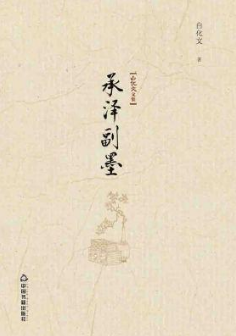 白化文 著
【白化文文集】
承泽副墨
中国书籍出版社